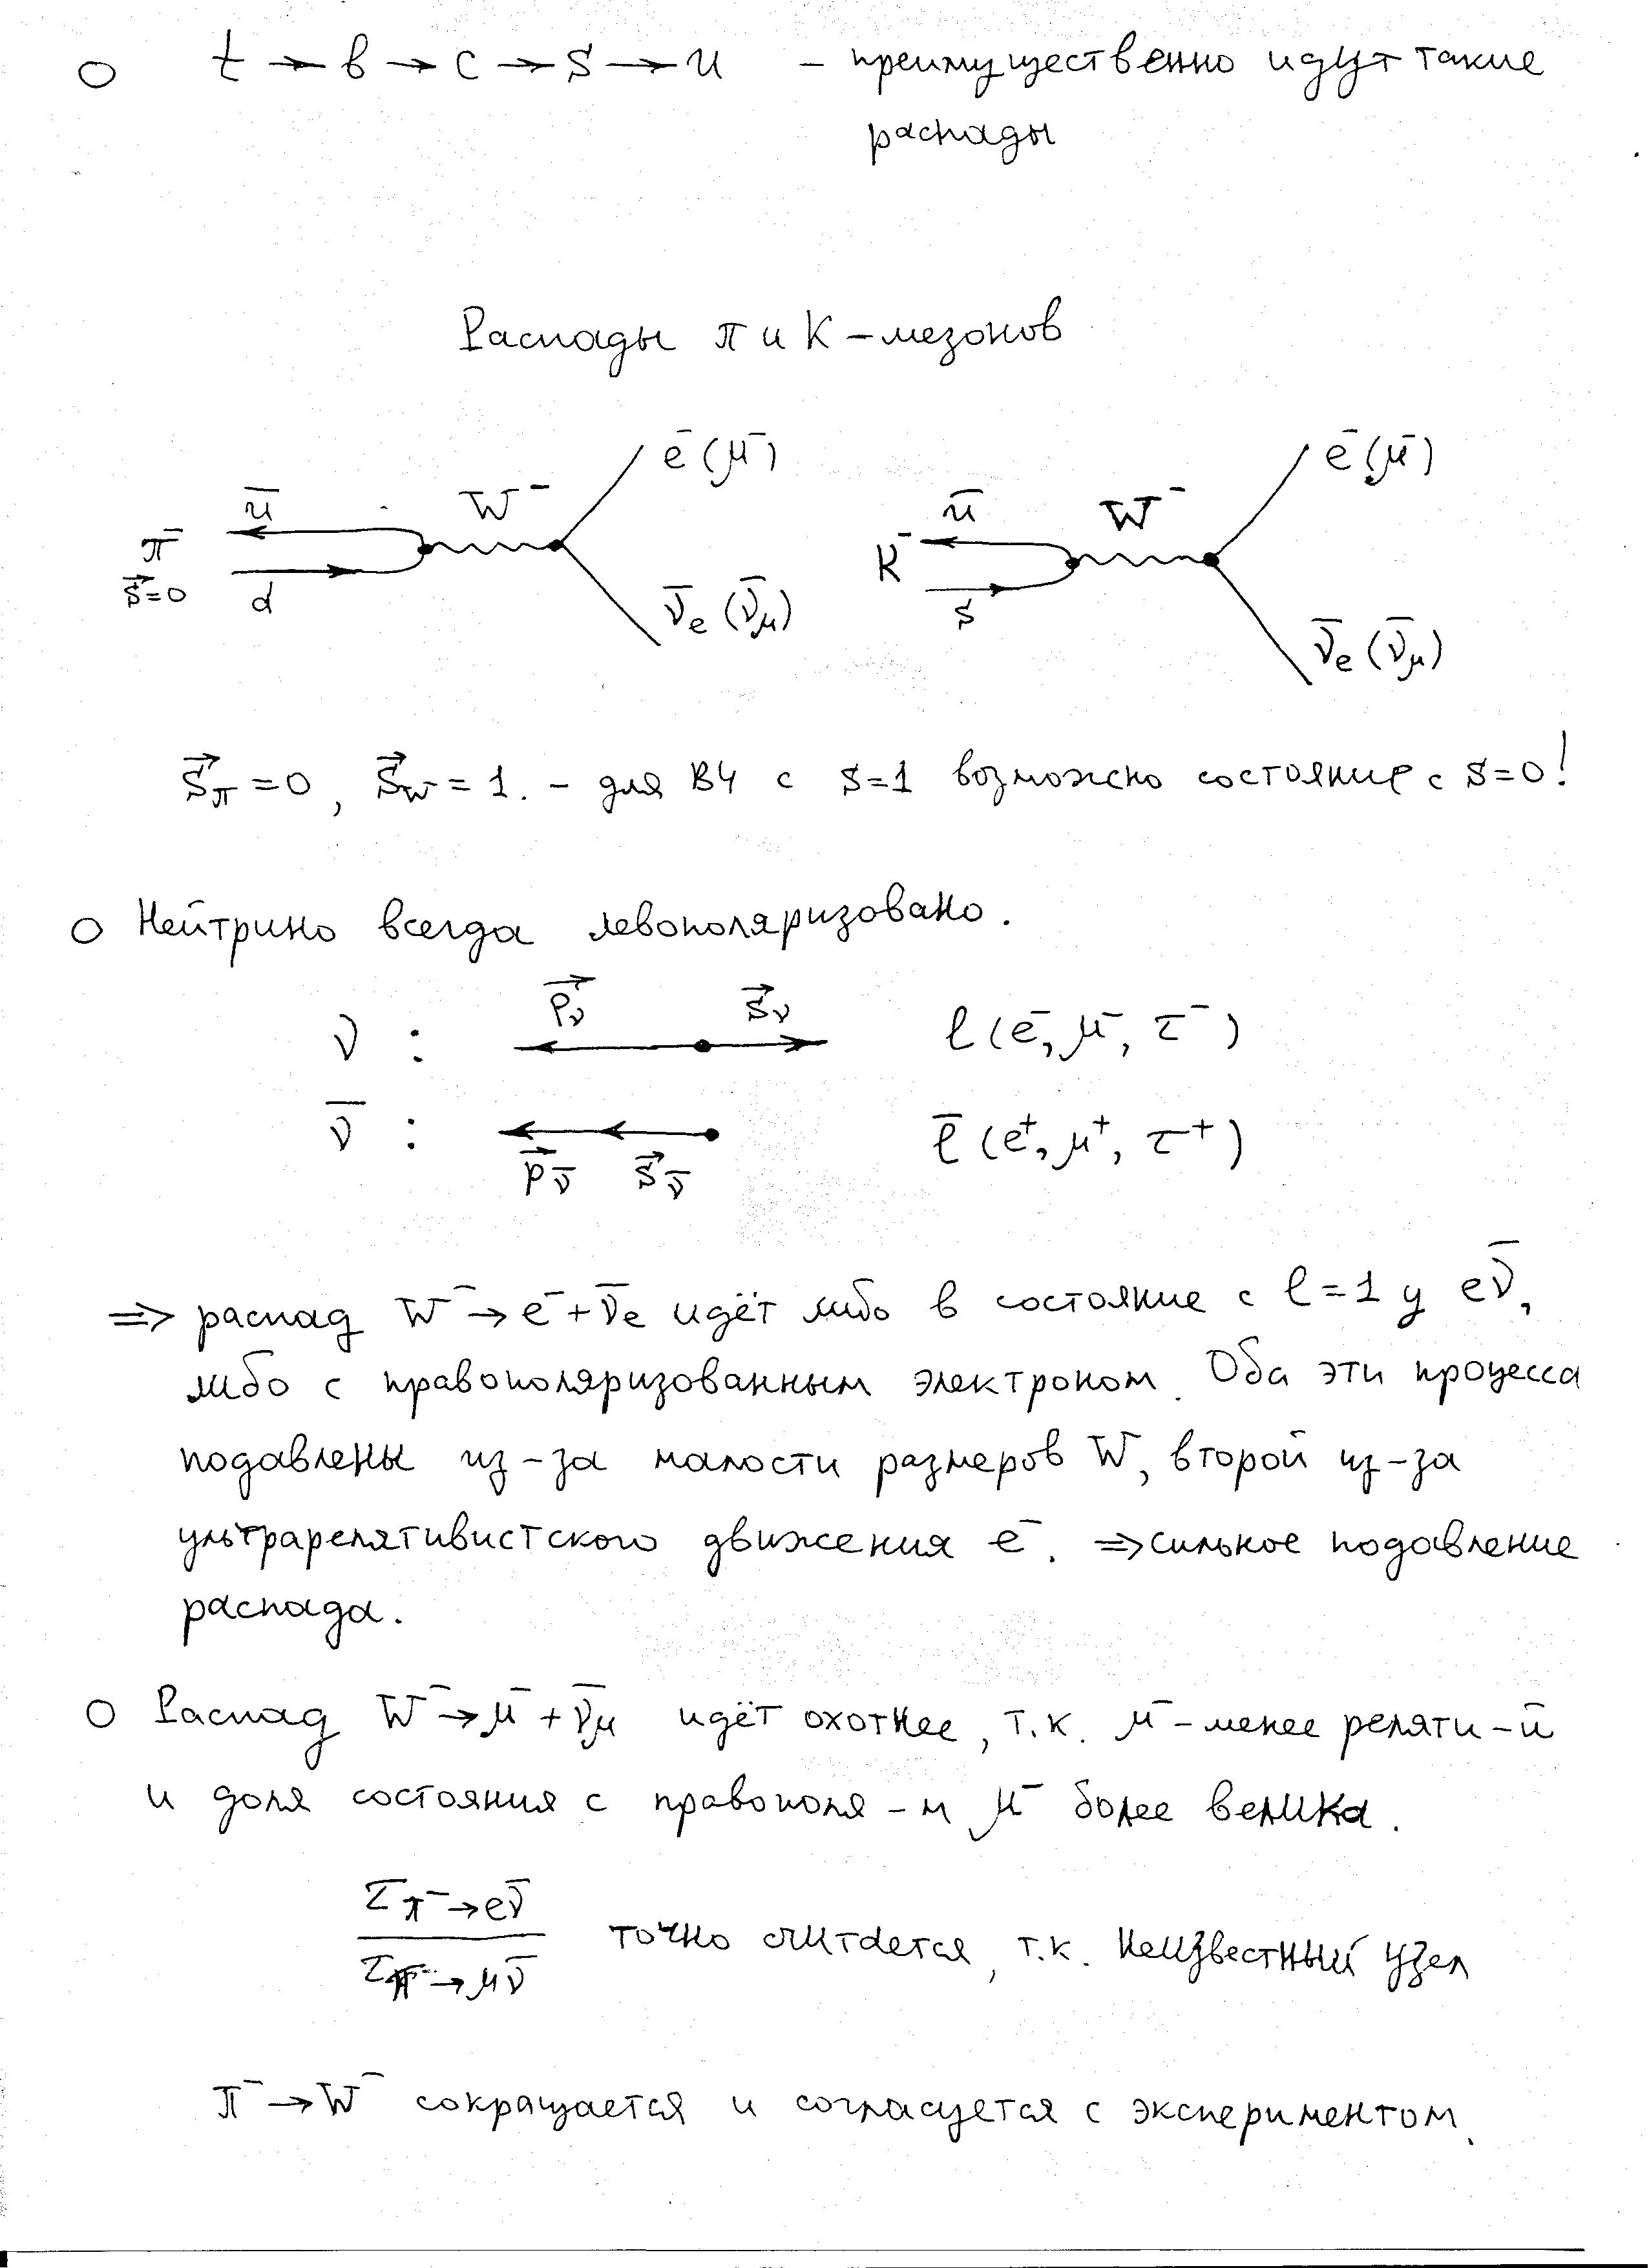 ○ t → b → c → s → u – преимущественно идут такие
распады
Распады π и K – мезонов
π⁻ s⃗=0 ū d W⁻ e⁻(μ⁻) ν̄e (ν̄μ)
K⁻ ū s W⁻ e⁻(μ⁻) ν̄e (ν̄μ)
S⃗π = 0, S⃗W = 1. – для ВЧ с s=1 возможно состояние с s=0!
○ Нейтрино всегда левополяризовано.
ν : p⃗ν s⃗ν l (e⁻, μ⁻, τ⁻)
ν̄ : p⃗ν̄ s⃗ν̄ l̄ (e⁺, μ⁺, τ⁺)
⇒ распад W⁻ → e⁻ + ν̄e идёт либо в состояние с l = 1 у eν̄,
либо с правополяризованным электроном. Оба эти процесса
подавлены из-за малости размеров W, второй из-за
ультрарелятивистского движения e⁻. ⇒ сильное подавление
распада.
○ Распад W⁻ → μ⁻ + ν̄μ идёт охотнее, т.к. μ⁻ – менее реляти-й
и доля состояния с правополя-м μ⁻ более велика.
τπ⁻→eν̄ / τπ⁻→μν̄ точно считается, т.к. неизвестный узел
π⁻ → W⁻ сокращается и согласуется с экспериментом.